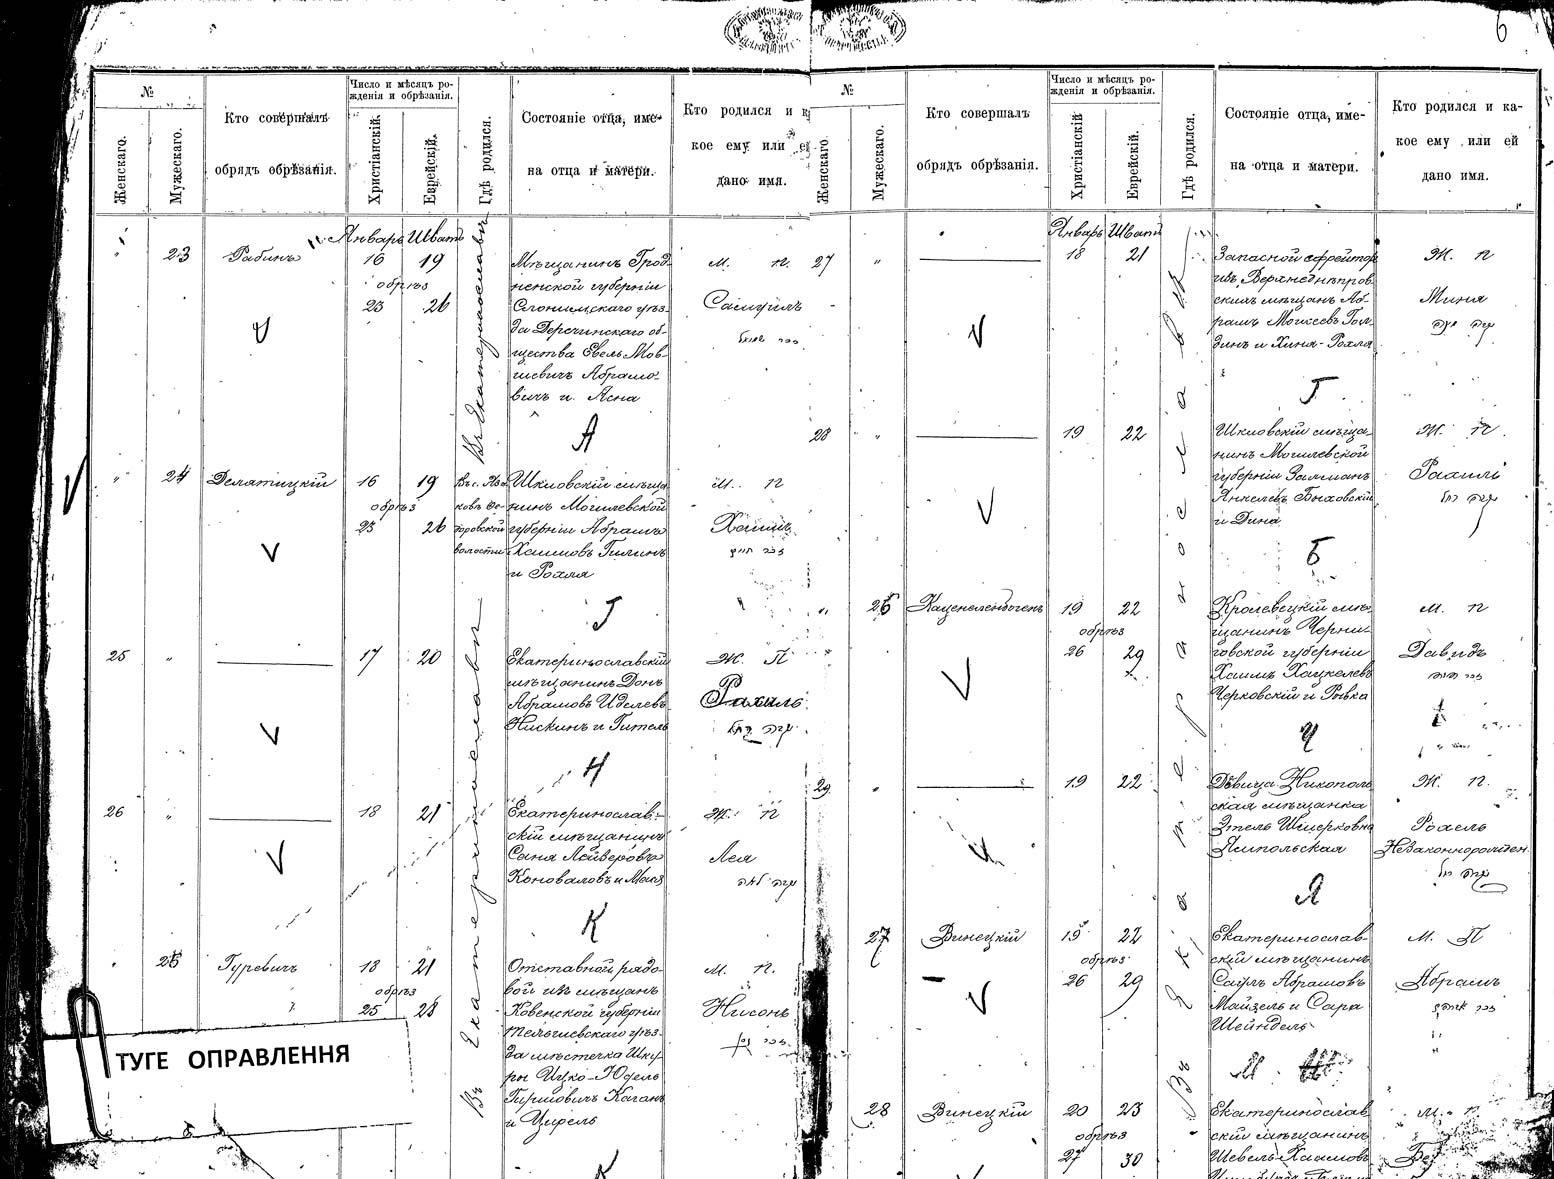 6
№
Женскаго.
Мужескаго.
Кто совершалъ
обрядъ обрѣзанія.
Число и мѣсяцъ ро-
жденія и обрѣзанія.
Христіанскій.
Еврейскій.
Гдѣ родился.
Состояніе отца, име-
на отца и матери.
Кто родился и к
кое ему или е
дано имя.
Январь Шватъ
Въ Екатеринославѣ
" 23 Рабинъ 16 19
обрѣз
23 26
Мѣщанинъ Грод-
ненской губерніи
Слонимскаго уѣз-
да Деречинскаго об-
щества Евель Мов-
шевичъ Абрамо-
вичъ и Ясна
М. п.
Самуилъ
זכר שמואל
А
" 24 Делятицкій 16 19
обрѣз
23 26
Въ с.
волости
Шкловскій мѣща-
нинъ Могилевской
губерніи Абрамъ
Хаимовъ Гилинъ
и Рохля
М. п
Хаимъ
זכר חיים
Г
25 " 17 20
Екатеринославскій
мѣщанинъ Донъ
Абрамовъ Иделевъ
Нискинъ и Гитель
Ж. П
Рахиль
נקבה רחל
Н
26 " 18 21
Екатеринослав-
скій мѣщанинъ
Саня Лейверовъ
Коноваловъ и
Ж. п
Лея
נקבה לאה
К
" 25 Гуревичъ 18 21
обрѣз
25 28
Отставной рядо-
вой изъ мѣщанъ
Ковенской губерніи
Тельшевскаго уѣз-
да мѣстечка Шку-
ры Ицко-Юдель
Гиршовичъ Каганъ
и Цирель
М. п.
Нисонъ
זכר ניסן
К
Въ Екатеринославѣ
ТУГЕ ОПРАВЛЕННЯ
№
Женскаго
Мужескаго.
Кто совершалъ
обрядъ обрѣзанія.
Число и мѣсяцъ ро-
жденія и обрѣзанія.
Христіанскій
Еврейскій.
Гдѣ родился.
Состояніе отца, име-
на отца и матери.
Кто родился и ка-
кое ему или ей
дано имя.
Январь Шватъ
Въ Екатеринославѣ
27 " 18 21
Запасной ефрейтор
изъ Верхнеднѣпров-
скихъ мѣщанъ Аб-
рамъ Моисеевъ Гол-
динъ и Хиня-Рохля
Ж. п
Миня
Г
28 " 19 22
Шкловскій мѣща-
нинъ Могилевской
губерніи Залманъ
Янкелевъ Быховскій
и Дина
Ж. п.
Рахиль
נקבה רחל
Б
" 26 Каценеленбогенъ 19 22
обрѣз
26 29
Кролевецкій мѣ-
щанинъ Черни-
говской губерніи
Хаимъ Хацкелевъ
Черковскій и Рывка
М. п
Давидъ
Ч
29 " 19 22
Дѣвица Никополь-
ская мѣщанка
Этель Шмерковна
Ямпольская
Ж. п.
Рохель
Незаконнорожден.
Я
27 Винецкій 19 22
обрѣз
26 29
Екатеринослав-
скій мѣщанинъ
Саулъ Абрамовъ
Майзель и Сара
Шейндель
М. П
Абрамъ
זכר אברהם
М
28 Винецкій 20 23
обрѣз
27 30
Екатеринослав
скій мѣщанинъ
Шевель Хаимовъ
М. п